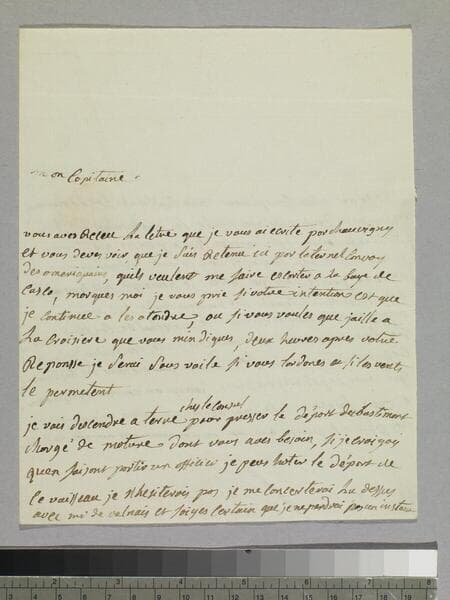 mon Capitaine
vous aves Recu La letre que je vous ai ecrite par chauvigny
et vous deves voir que je suis Retenu ici par leternel Convoy
des ameriquains, quils veulent me faire escorter a la baye de
Casco, marques moi je vous prie si votre intention est que
je continue a les atendre, ou si vous voules que jaille a
La Croisiere que vous mindiques, deux heures apres votre
Reponsse je serai sous voile si vous lordones et si les vents
le permetent
je vais descendre a terre ches le Consul pour presser le départ du bastiment
chargé de mature dont vous aves besoin, si je croiyois
quen faisant partir un officier je peus hater le départ de
ce vaisseau je nhesiterois pas je me concerterai la dessus
avec mr de valnais et soiyes certain que je ne perdrai pas un instant